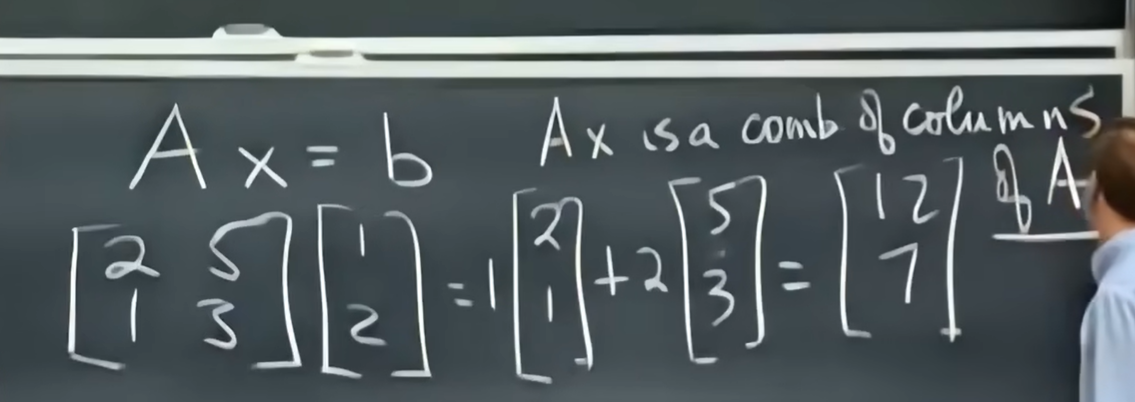 A x = b
Ax is a comb of columns
of A
[2 5] [1] = 1 [2] + 2 [5] = [12]
[1 3] [2] [1] [3] [7]